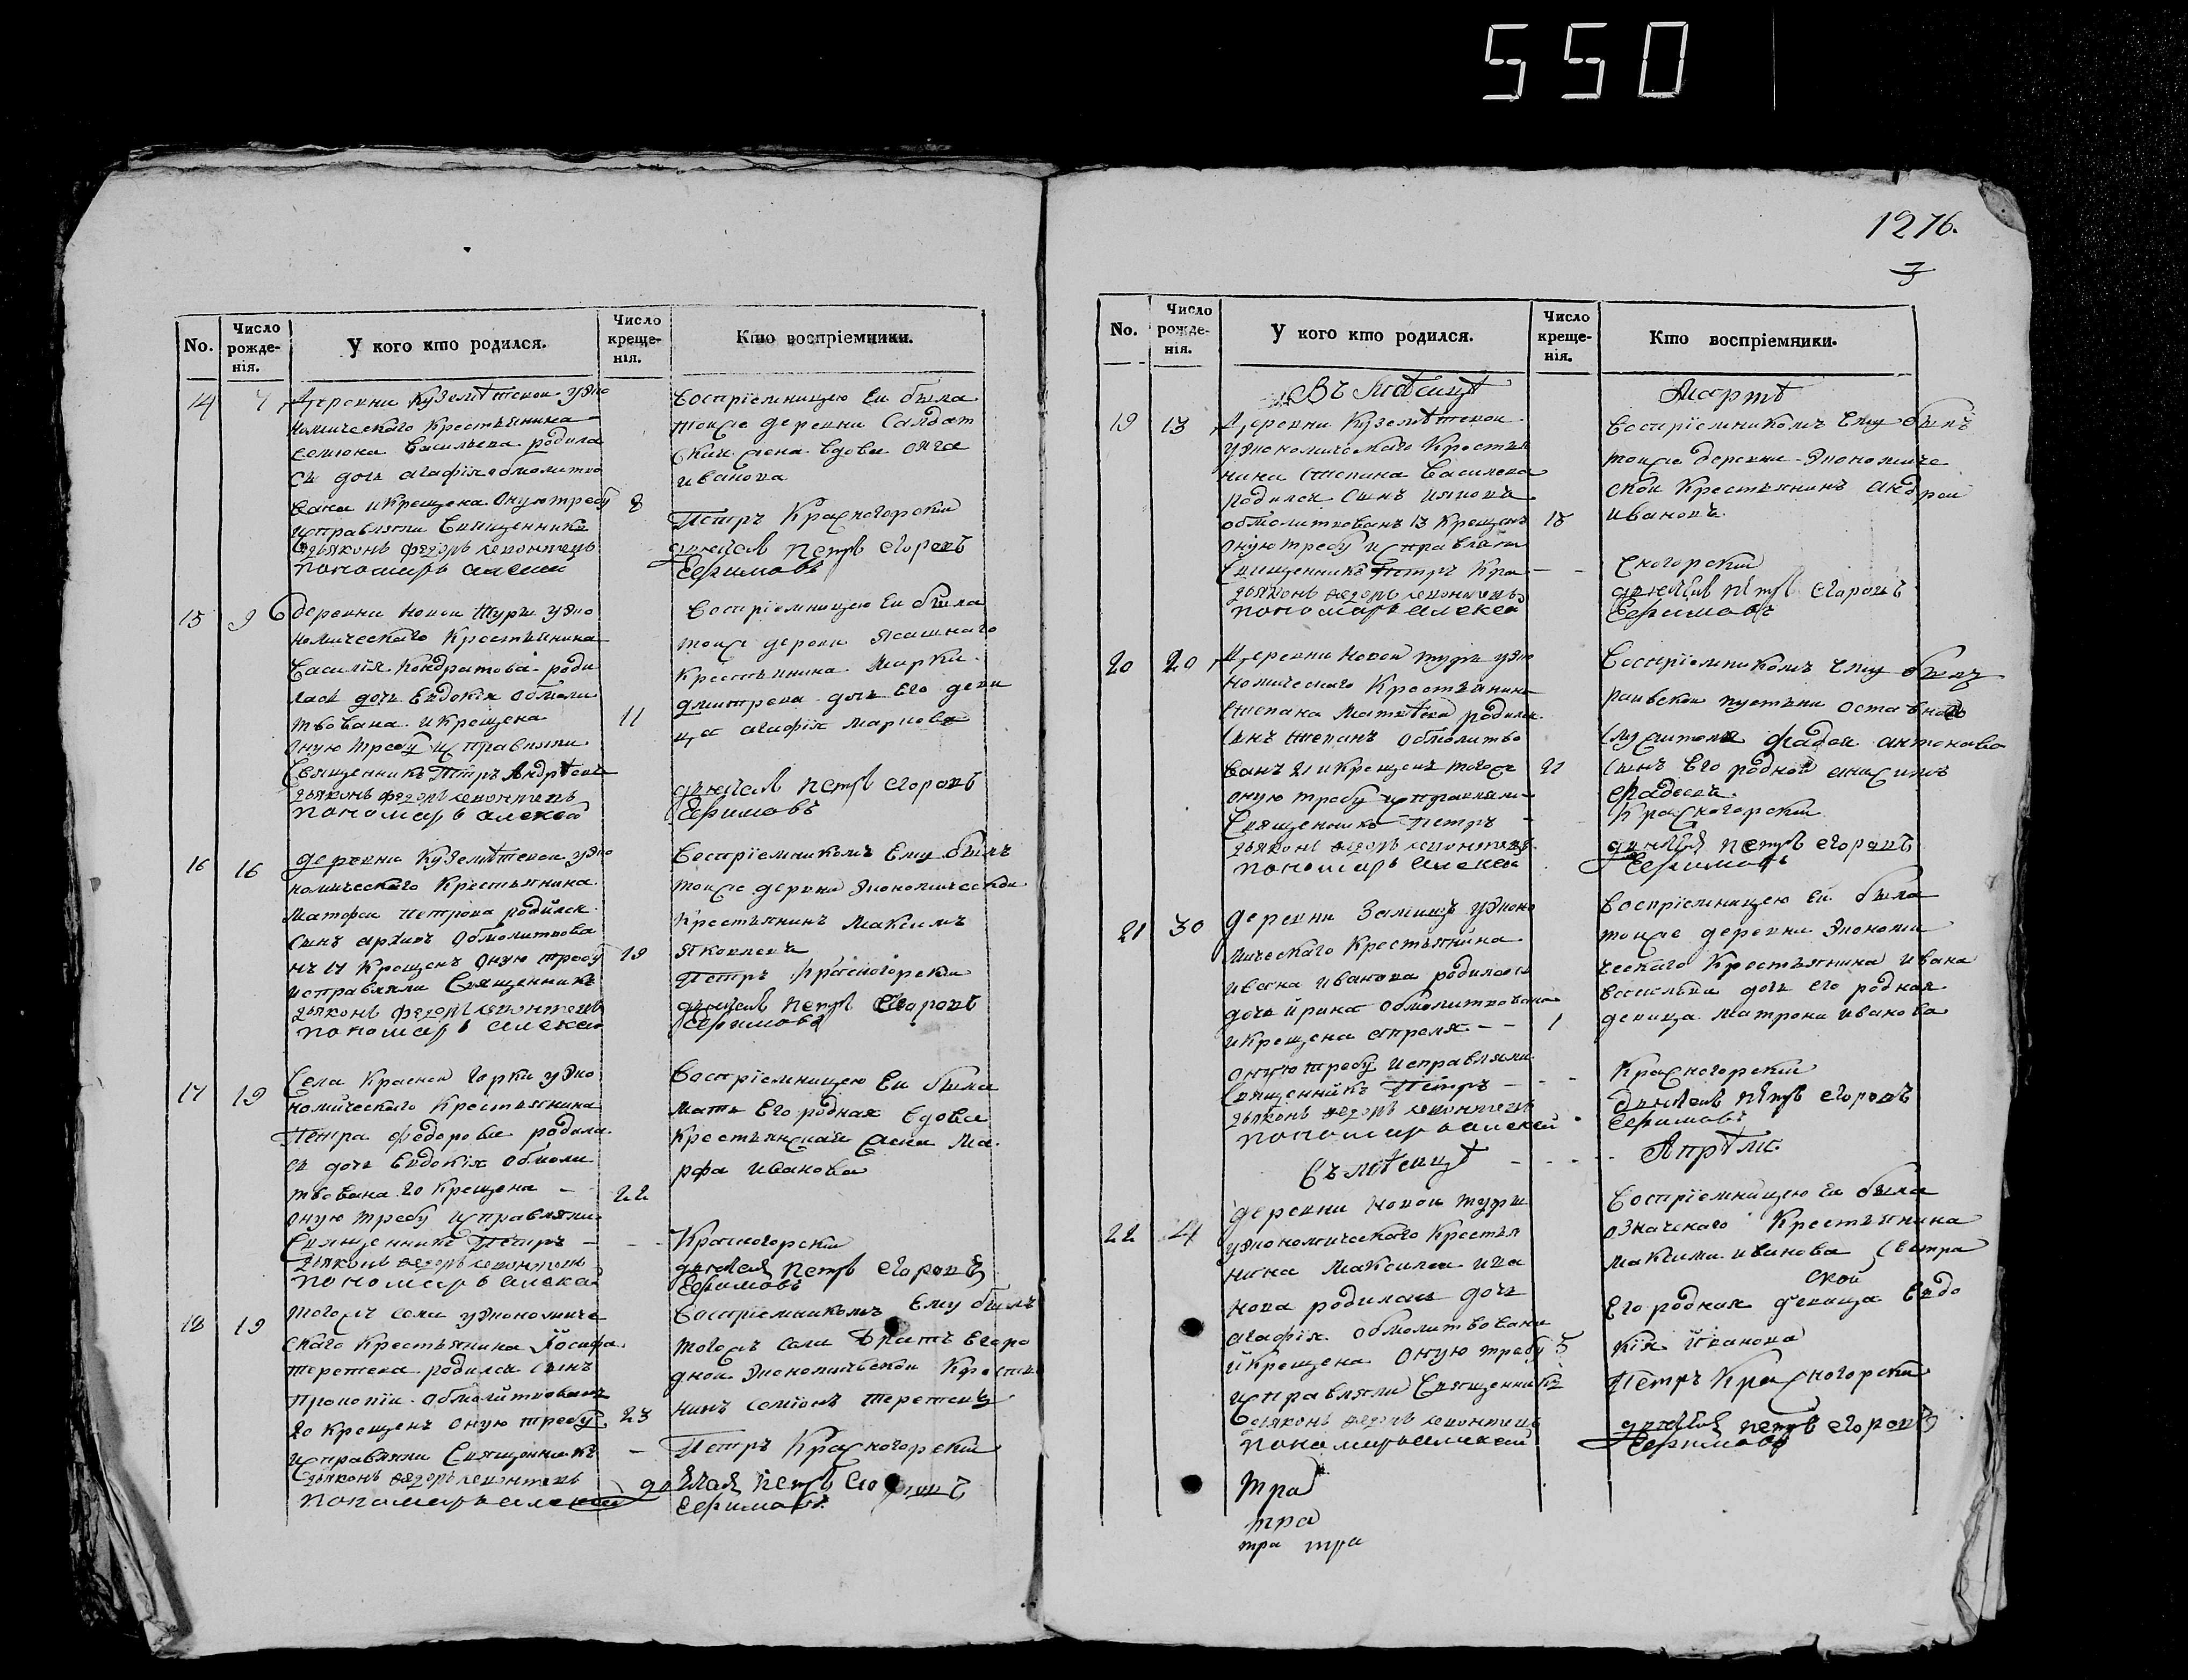 550
No.
Число рожденія.
У кого кто родился.
Число крещенія.
Кто воспріемники.
14
7
Деревни Куземетевои уэко
номического Крестьянина
Семиона Васильева родила
сь дочь агафія обмолитво
вана и Крещена Оную требу
8
исправляли Священникъ
дьяконъ федоръ леонтьевъ
пономарь алексеи
Воспріемницею Еи была
тоиже деревни Салдат
ская жена вдова
иванова
Петръ Красногорскіи
дьячекъ петръ егоровъ
Ефимовъ
15
9
деревни новои Туры уэко
номического Крестьянина
Василія Кондратова роди
лась дочь Евдокія обмоли
твована и Крещена
11
оную требу исправляли
Священникъ Петръ Андреевъ
дьяконъ федоръ леонтьевъ
пономарь алексеи
Воспріемницею Еи была
тоиже деревни Ясашного
Крестьянина Марки
дмитрева дочь его деви
ца агафія маркова
дьячекъ петръ егоровъ
Ефимовъ
16
16
деревни Куземетевои уэко
номического Крестьянина
Матфея петрова родился
сынъ архипъ обмолитвова
нъ 17 Крещенъ Оную требу
19
исправляли Священникъ
дьяконъ федоръ леонтьевъ
пономарь алексеи
Воспріемникомъ Ему былъ
тоиже деревни экономическои
крестьянинъ Максимъ
Яковлевъ
Петръ Красногорскіи
дьячекъ петръ егоровъ
Ефимовъ
17
19
Села Краснои горки уэко
номического Крестьянина
Петра федорова родила
сь дочь Евдокія обмоли
твована 20 Крещена
22
оную требу исправляли
Священникъ Петръ
дьяконъ федоръ леонтьевъ
пономарь алексеи
Воспріемницею Еи была
мать Его родная вдова
Крестьянская жена Ма
рфа иванова
Красногорскіи
дьячекъ петръ егоровъ
Ефимовъ
18
19
тогожъ села уэкономиче
ского Крестьянина Йосифа
терентева родился сынъ
Прокопіи обмолитвованъ
20 Крещенъ оную требу
23
исправляли Священникъ
дьяконъ федоръ леонтьевъ
пономарь алексеи
Воспріемникомъ Ему былъ
тогожъ села братъ Его ро
днои экономическои Крестья
нинъ семіонъ терентевъ
Петръ Красногорскіи
дьячекъ петръ егоровъ
Ефимовъ
1276.
3
No.
Число рожденія.
У кого кто родился.
Число крещенія.
Кто воспріемники.
Въ Месяце
Марте
19
13
Деревни Куземетевои
уэкономического Крестья
нина Степана Василева
родился сынъ
обмолитвованъ 13 Крещенъ
15
оную требу исправляли
Священникъ Петръ Кра
дьяконъ федоръ леонтьевъ
пономарь алексеи
Воспріемникомъ Ему былъ
тоиже деревни экономиче
скои Крестьянинъ андреи
ивановъ
сногорскіи
дьячекъ петръ егоровъ
Ефимовъ
20
20
Деревни новои туры уэко
номического Крестьянина
Степана Матвеева родился
сынъ степанъ обмолитво
ванъ 21 и Крещенъ тогоже
21
оную требу исправляли
Священникъ Петръ
дьяконъ федоръ леонтьевъ
пономарь алексеи
Воспріемникомъ Ему былъ
раивскои пустыни оставного
служителя фадея антонова
сынъ Его роднои
фадеевъ
Красногорскіи
дьячекъ петръ егоровъ
Ефимовъ
21
30
деревни Займищъ уэконо
мического Крестьянина
ивана иванова родилась
дочь ирина обмолитвована
и Крещена апреля
1
оную требу исправляли
Священникъ Петръ
дьяконъ федоръ леонтьевъ
пономарь алексеи
Воспріемницею Еи была
тоиже деревни экономи
ческаго Крестьянина ивана
васильева дочь его родная
девица матрона иванова
Красногорскіи
дьячекъ петръ егоровъ
Ефимовъ
Въ месяце
Апреле
22
4
деревни новои туры
уэкономического Крестья
нина Максима ива
нова родилась дочь
агафія обмолитвована
и Крещена оную требу
5
исправляли Священникъ
дьяконъ федоръ леонтьевъ
пономарь алексеи
Воспріемницею Еи была
означеннаго Крестьянина
максима иванова сестра
Его родная девица Евдо
кія иванова
Петръ Красногорскіи
дьячекъ петръ егоровъ
Ефимовъ
тра
тра
тра тра